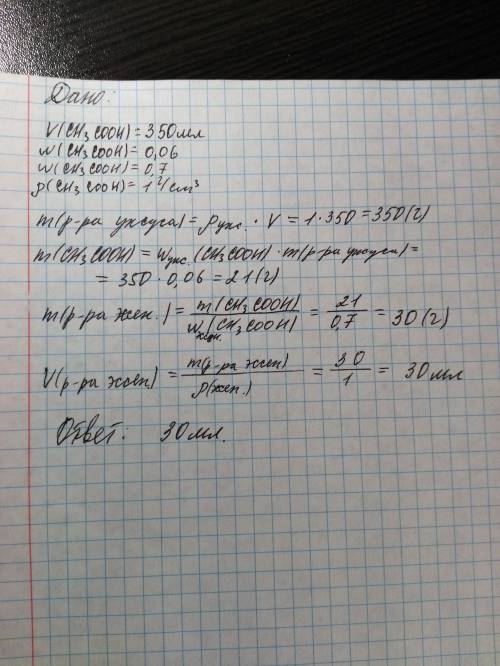 Дано:
V(CH3COOH)=350мл
w(CH3COOH)=0,06
w(CH3COOH)=0,7
ρ(CH3COOH)=1 г/см³
m(р-ра уксуса)=ρукс.·V=1·350=350(г)
m(CH3COOH)=wукс.(CH3COOH)·m(р-ра уксуса)=
=350·0,06=21(г)
m(р-ра эссен.)=m(CH3COOH)/wэссен.(CH3COOH)=21/0,7=30(г)
V(р-ра эссен.)=m(р-ра эссен)/ρ(эссен.)=30/1=30мл
Ответ: 30мл.